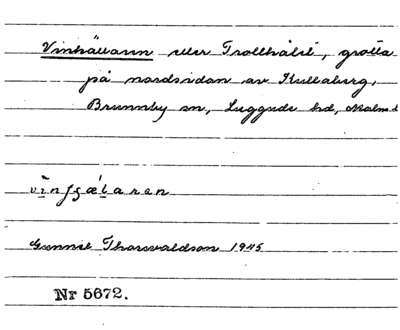 Vinkällaren eller Trollhålet, grotta
på nordsidan av Kullaberg,
Brunnby sn, Luggude hd, Malmh
Gunnel Thorwaldson 1945
Nr 5672.